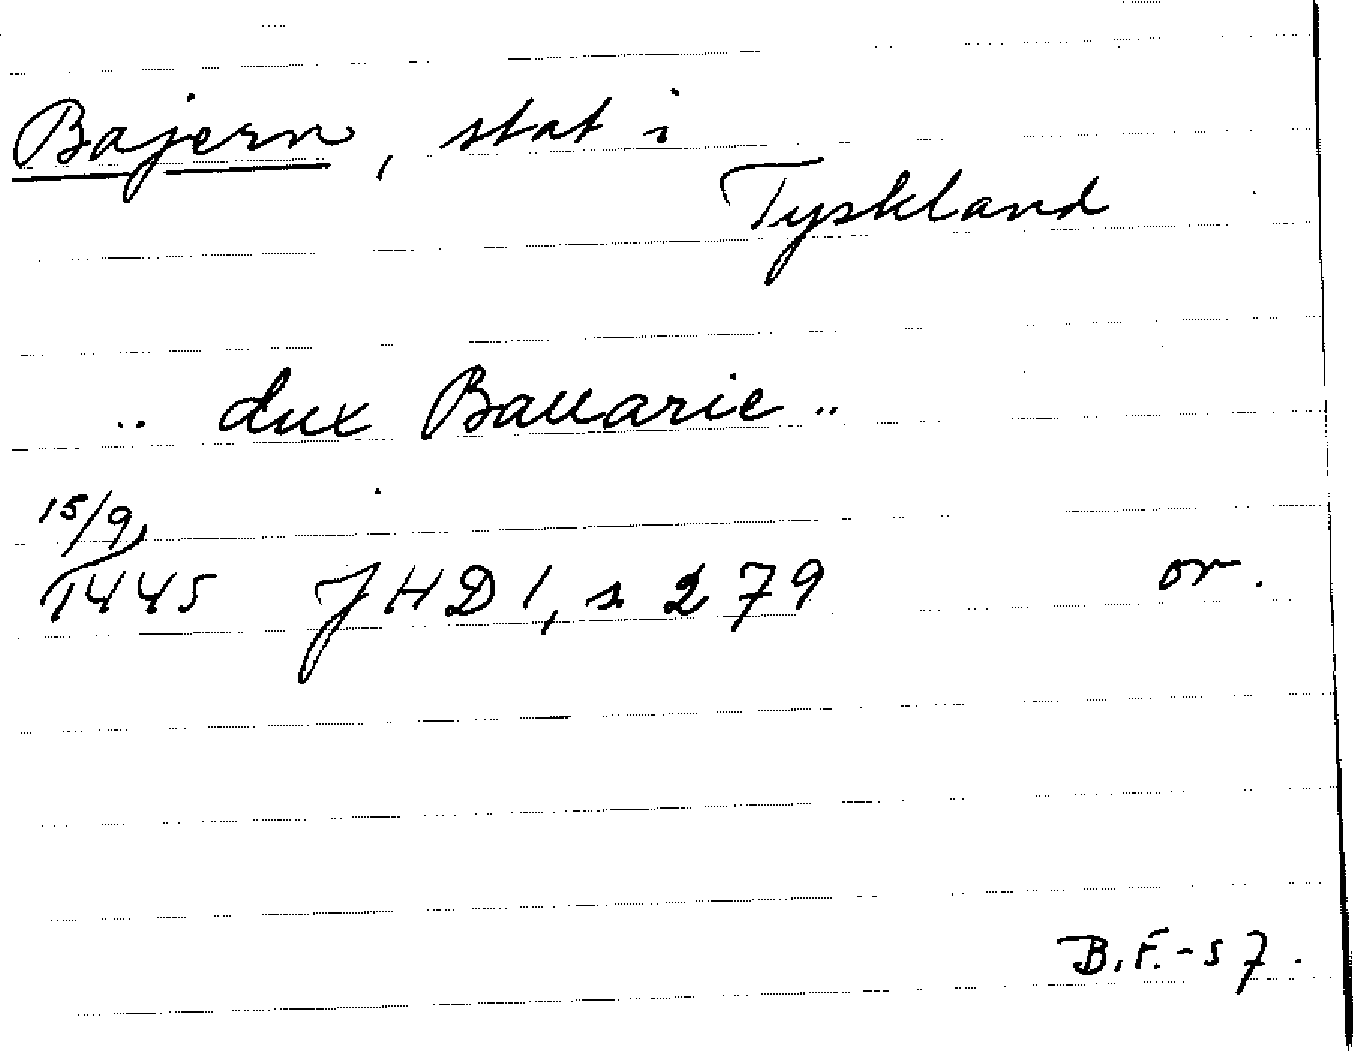 Bajern, stat i
Tyskland
.. dux Bauarie ..
15/9
1445 JHD 1, s 279 or.
B.F.-57.